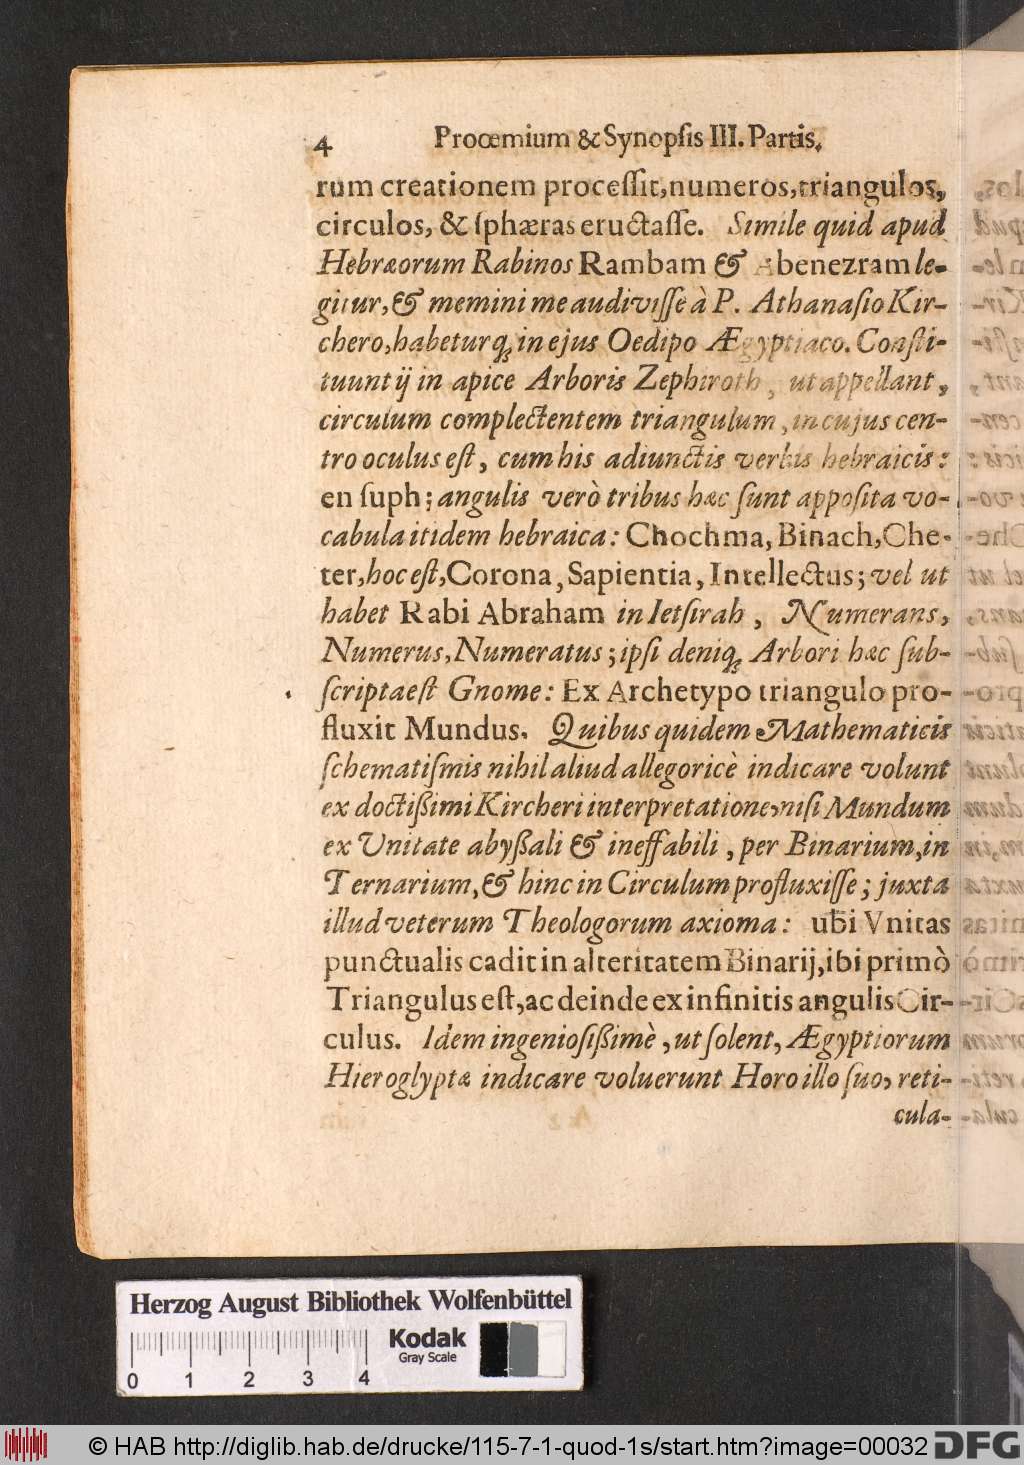 4 Proœmium & Synopſis III. Partis.
rum creationem proceſſit, numeros, triangulos,
circulos, & ſphæras eructaſſe. Simile quid apud
Hebræorum Rabinos Rambam & Abenezram le-
gitur, & memini me audiviſſe à P. Athanaſio Kir-
chero, habeturq; in ejus Oedipo Ægyptiaco. Conſti-
tuunt ij in apice Arboris Zephiroth, ut appellant,
circulum complectentem triangulum, in cujus cen-
tro oculus eſt, cum his adiunctis verbis hebraicis:
en ſuph; angulis verò tribus hæc ſunt appoſita vo-
cabula itidem hebraica: Chochma, Binach, Che-
ter, hoc eſt, Corona, Sapientia, Intellectus; vel ut
habet Rabi Abraham in Ietſirah, Numerans,
Numerus, Numeratus; ipſi deniq; Arbori hæc ſub-
ſcripta eſt Gnome: Ex Archetypo triangulo pro-
fluxit Mundus. Quibus quidem Mathematicis
ſchematiſmis nihil aliud allegoricè indicare volunt
ex doctißimi Kircheri interpretatione, niſi Mundum
ex Unitate abyßali & ineffabili, per Binarium, in
Ternarium, & hinc in Circulum profluxiſſe; juxta
illud veterum Theologorum axioma: ubi Vnitas
punctualis cadit in alteritatem Binarij, ibi primò
Triangulus eſt, ac deinde ex infinitis angulis Cir-
culus. Idem ingenioſißimè, ut ſolent, Ægyptiorum
Hieroglyptæ indicare voluerunt Horo illo ſuo, reti-
cula-
Herzog August Bibliothek Wolfenbüttel
Kodak
Gray Scale
0 1 2 3 4
© HAB http://diglib.hab.de/drucke/115-7-1-quod-1s/start.htm?image=00032 DFG